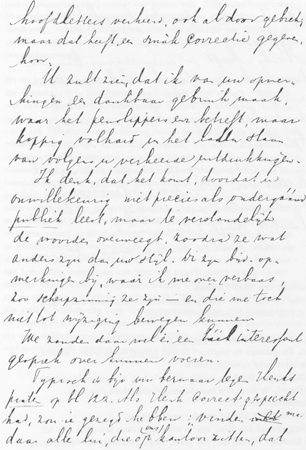 hoofdletters verkeers, ook al door gebrek,
maar dat heeft een snúk correctie gegeven,
hoor.
U zult zien, dat ik van uw opmer-
kingen een dankbaar gebruik maak,
waar het penslippers enz betreft, maar
koppig volhard in het laten staan
van volgens u verkeerde uitdrukkingen.
Ik denk, dat het komt, doordat u
onwillekeurig niet precies als ondergáánd
publiek leest, maar te verstandelijk
de woorden overweegt, zoodra ze wat
anders zijn dan uw stijl. Er zijn bvd. op-
merkingen bij, waar ik me over verbaas,
zoo scherpzinnig ze zijn — en die me toch
niet tot wijziging bewegen kunnen.
We zouden daar wel é een heel interessant
gesprek over kunnen voeren.
Typisch is bij uw bezwaar tegen Henks
praten op bl 122. Als Henk correct gesproken
had, zou ie gezegd hebben: vinden me
daar alle lui, die op ons kantoor zitten, dat